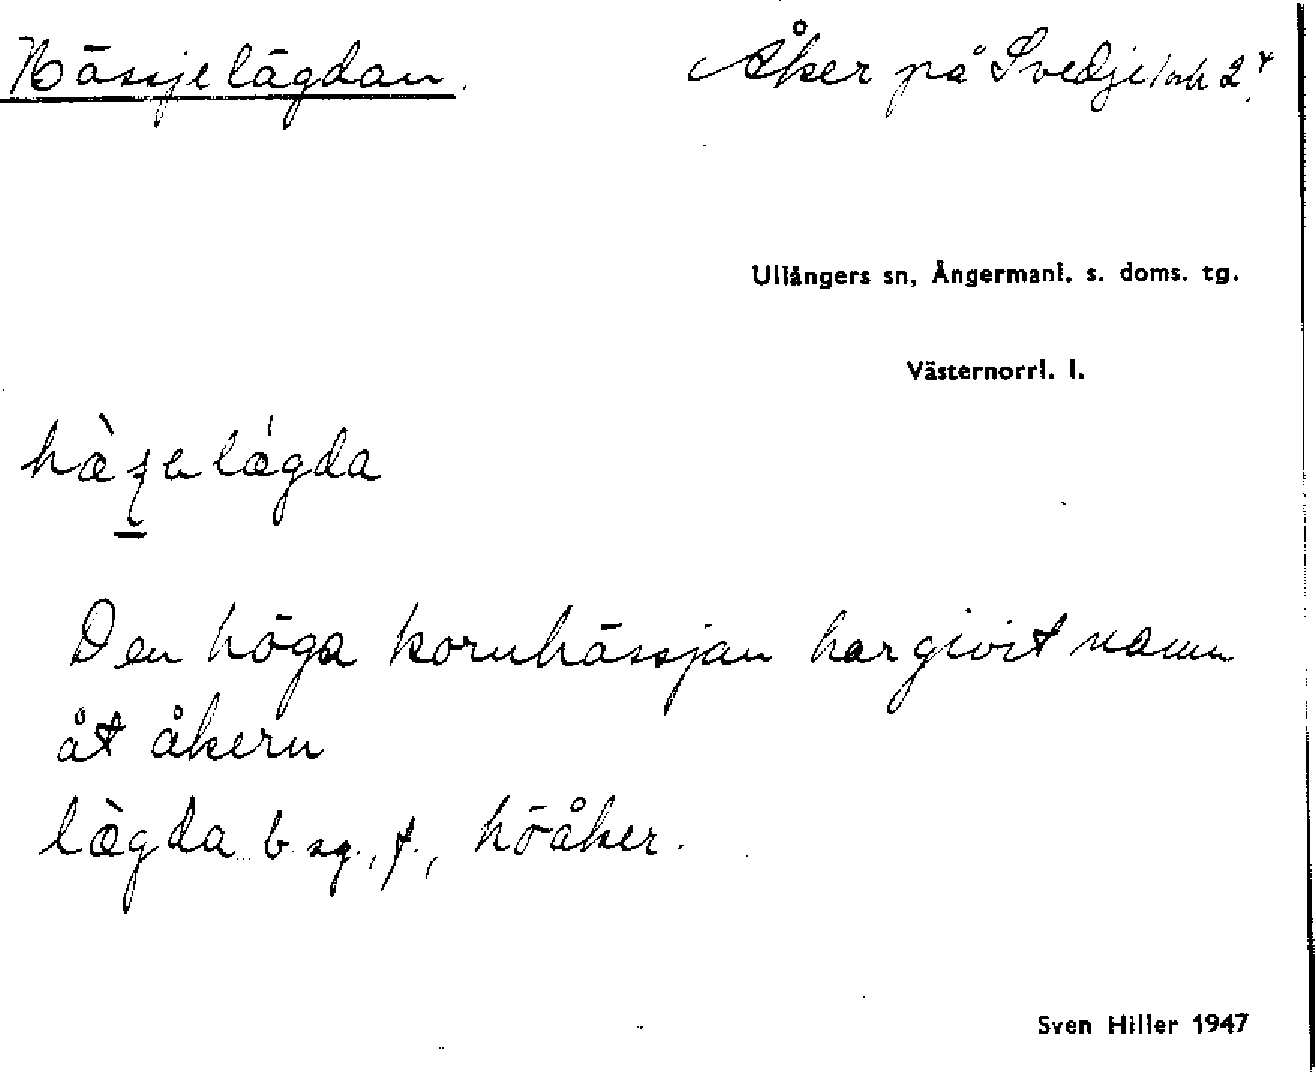 Hässjelägdan.
Åker på Svedje 2
Ullångers sn, Ångermanl. s. doms. tg.
Västernorrl. l.
Den höga kornhässjan har givit namn
åt åkern
lægda b. sg., f., höåker.
Sven Hiller 1947